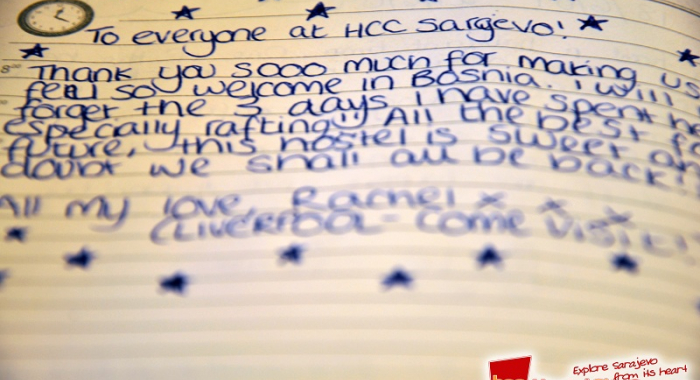 To everyone at HCC Sarajevo!
Thank you sooo much for making us
feel so welcome in Bosnia. I will
forget the 3 days I have spent
especially rafting!! All the best
future, this hostel is sweet
doubt we shall all be back!
All my love, Rachel x x x
(Liverpool - come visit!
Explore Sarajevo
from its heart